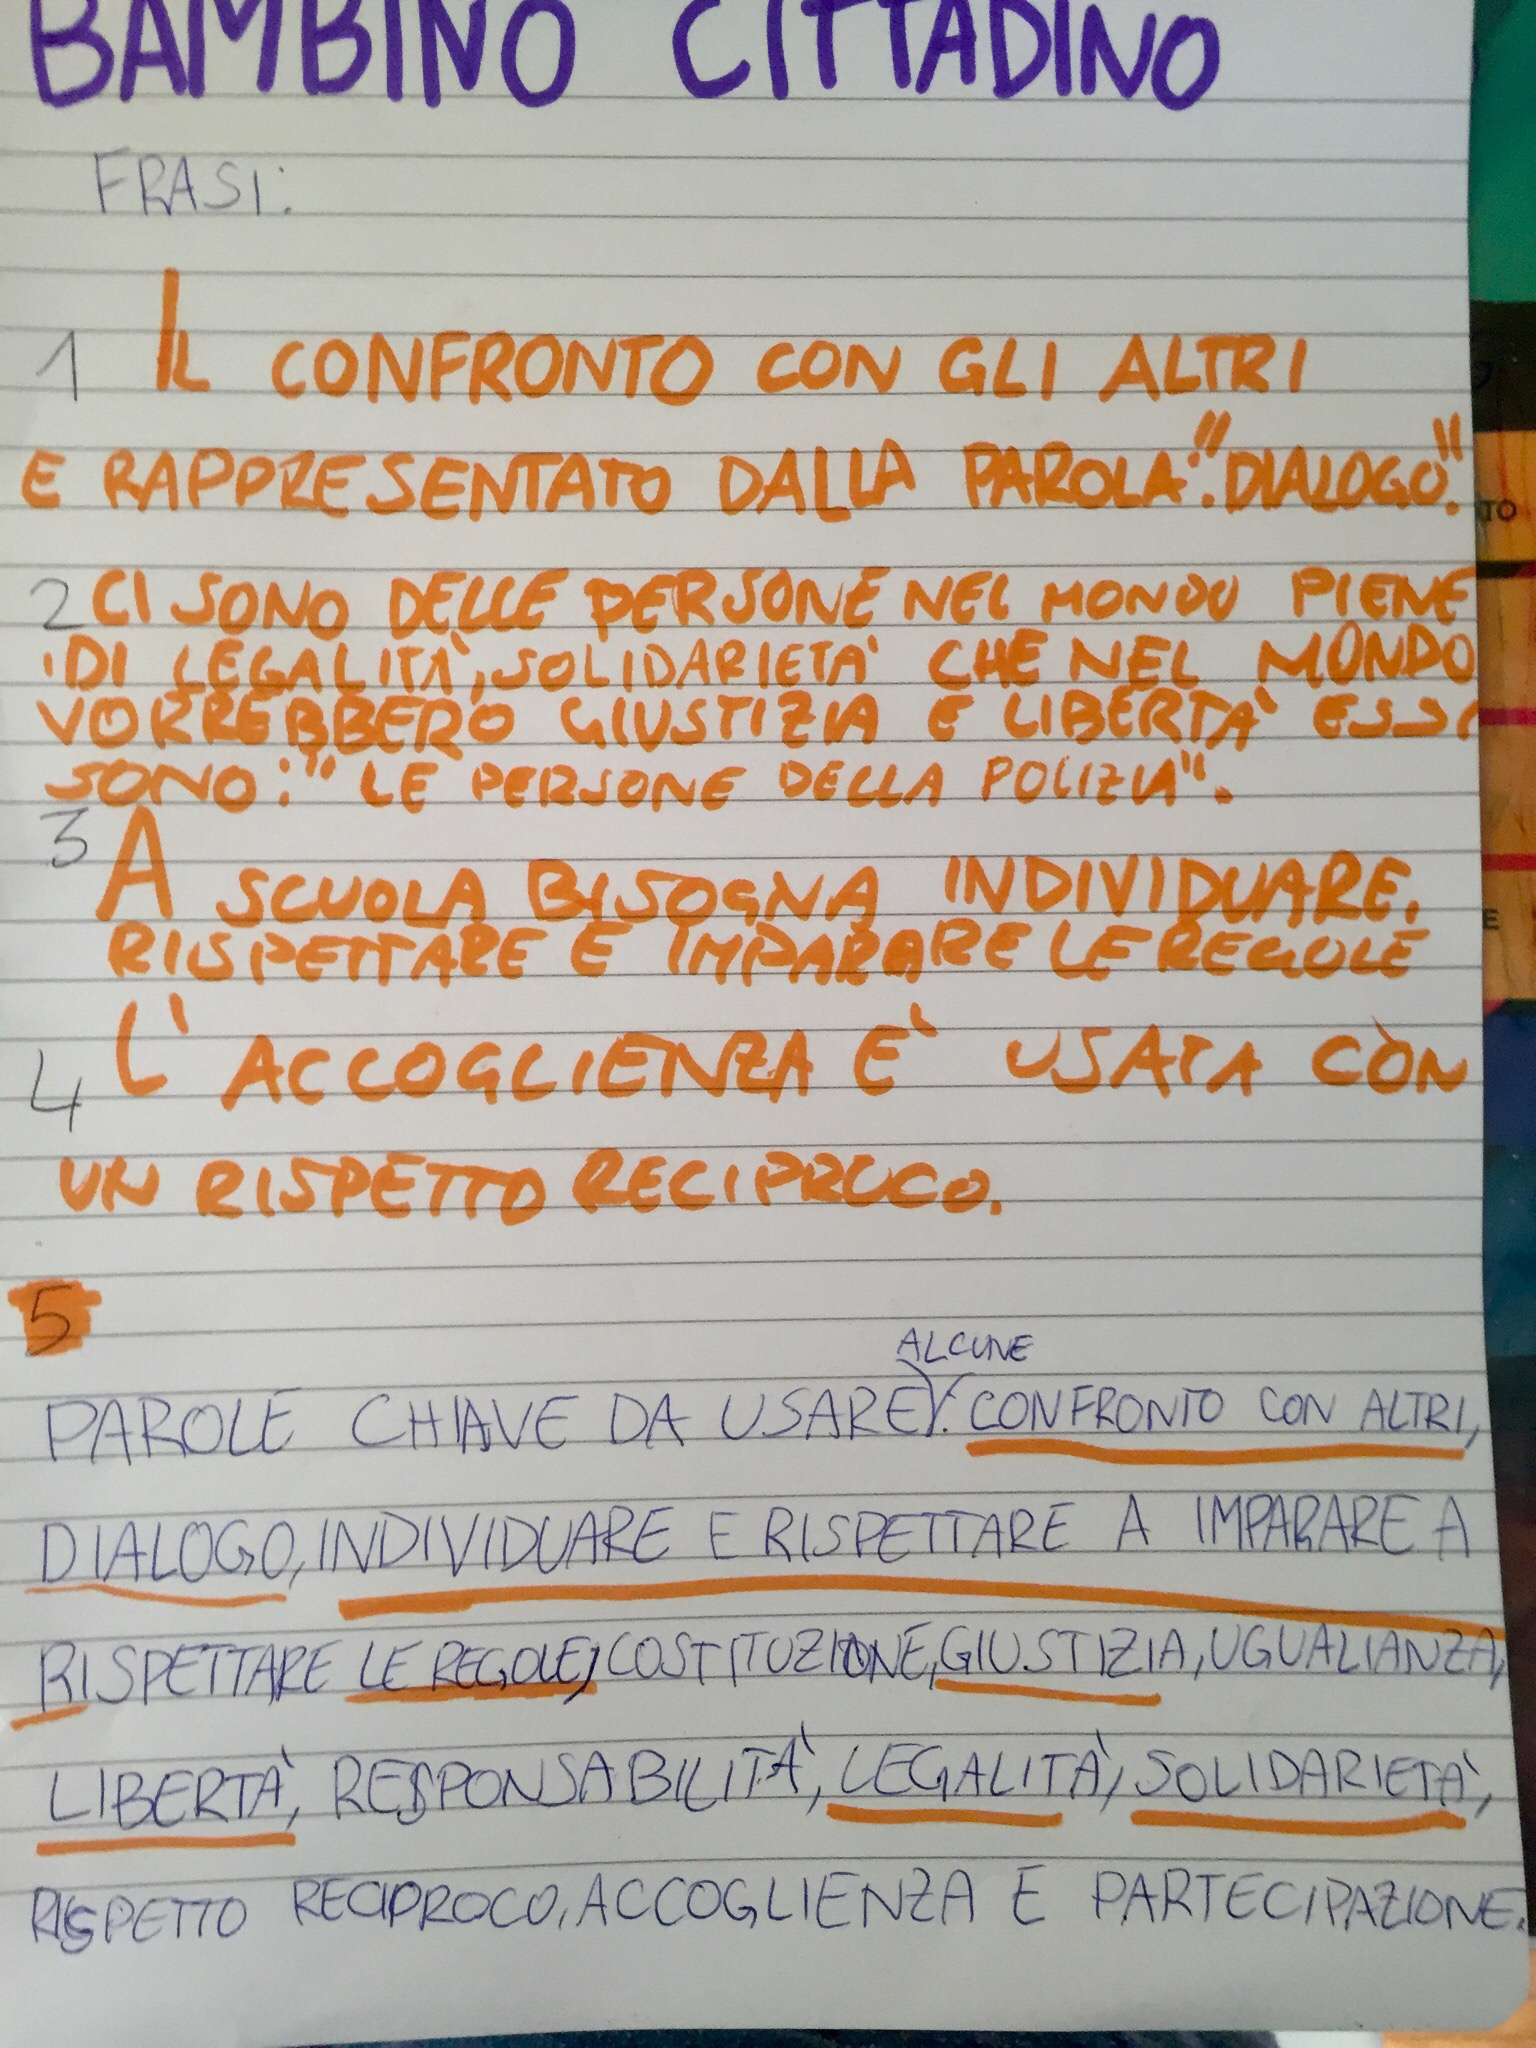 BAMBINO CITTADINO
FRASI:
1 IL CONFRONTO CON GLI ALTRI
E RAPPRESENTATO DALLA PAROLA:"DIALOGO".
2 CI SONO DELLE PERSONE NEL MONDO PIENE
DI LEGALITÀ, SOLIDARIETA' CHE NEL MONDO
VORREBBERO GIUSTIZIA E LIBERTA' ESSI
SONO:" LE PERSONE DELLA POLIZIA".
3 A SCUOLA BISOGNA INDIVIDUARE,
RISPETTARE E IMPARARE LE REGOLE
4 L' ACCOGLIENZA E' USATA CON
UN RISPETTO RECIPROCO.
5
ALCUNE
PAROLE CHIAVE DA USARE: CONFRONTO CON ALTRI,
DIALOGO, INDIVIDUARE E RISPETTARE A IMPARARE A
RISPETTARE LE REGOLE, COSTITUZIONE, GIUSTIZIA, UGUALIANZA,
LIBERTÀ, RESPONSABILITÀ, LEGALITÀ, SOLIDARIETÀ,
RISPETTO RECIPROCO, ACCOGLIENZA E PARTECIPAZIONE.
TO
E